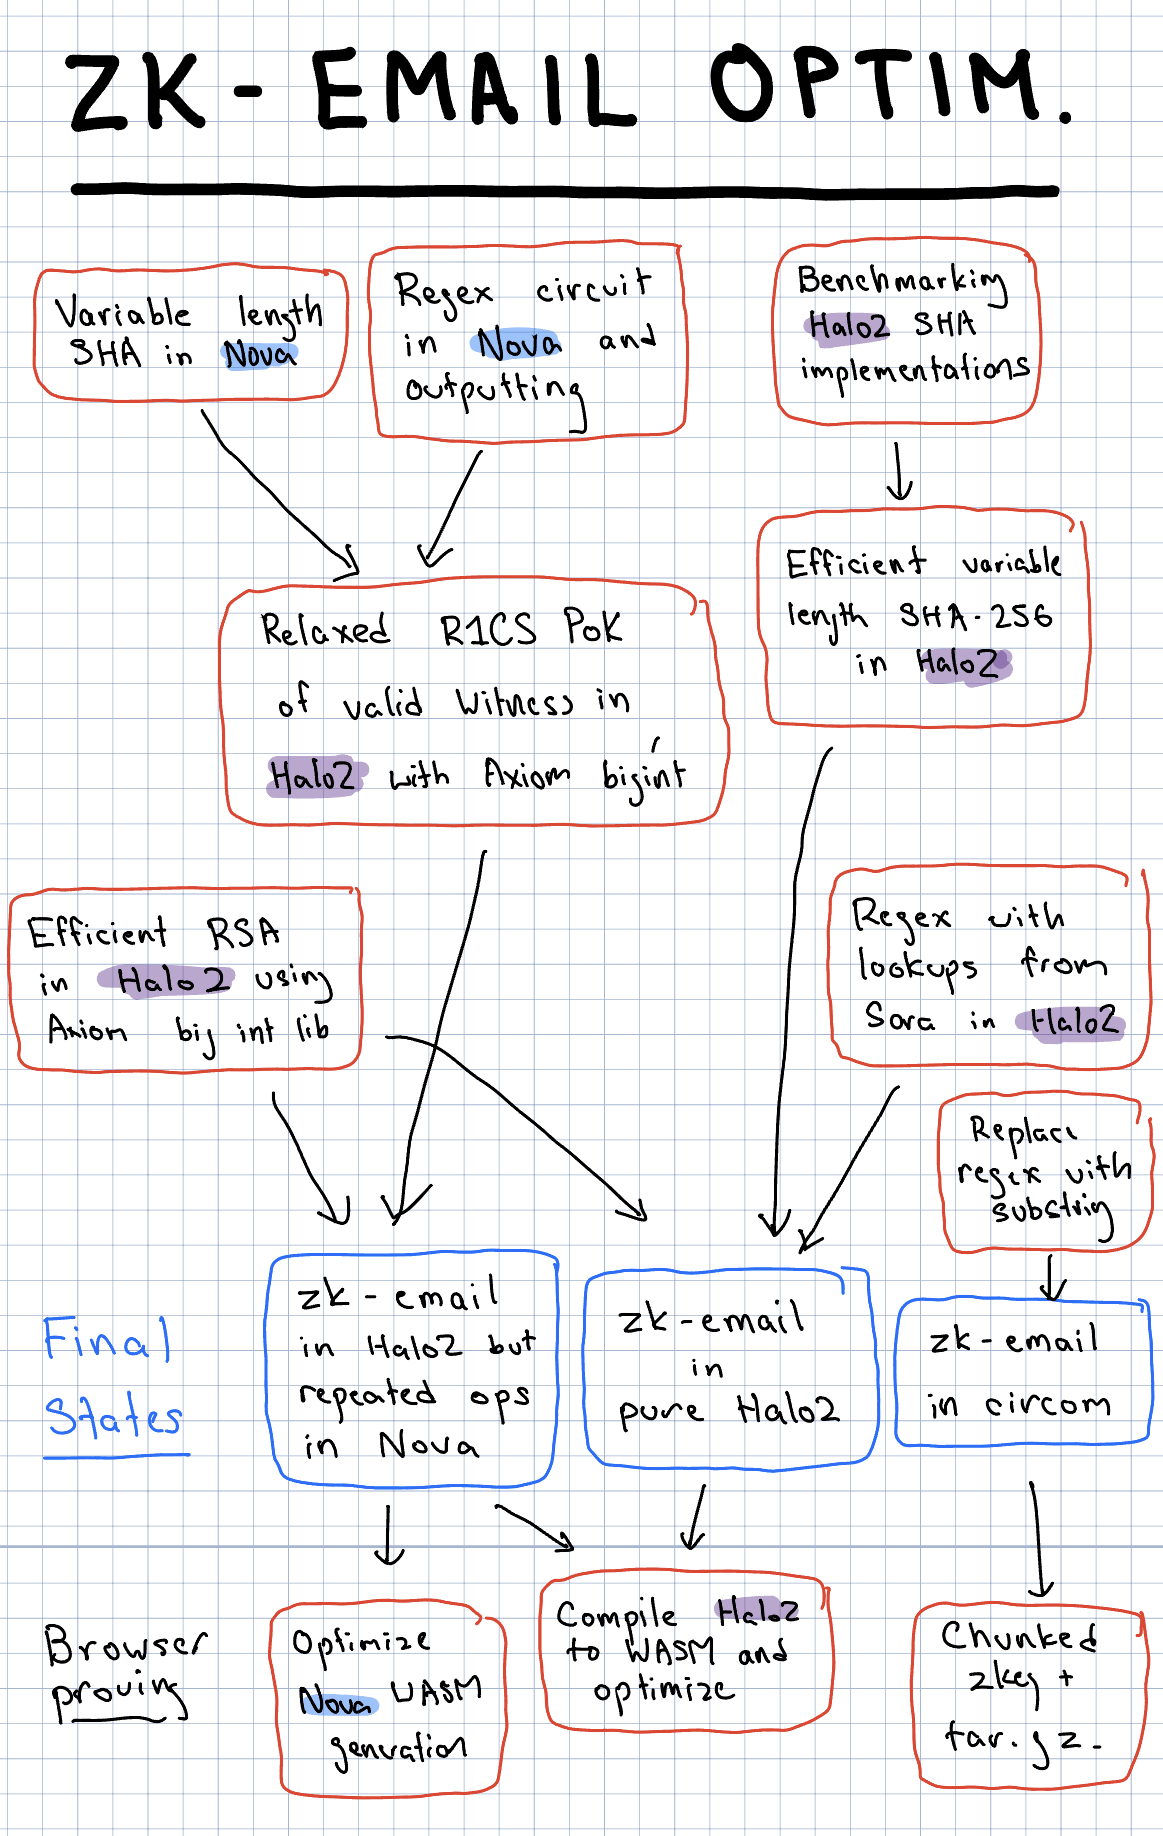 ZK-EMAIL OPTIM.
Variable length
SHA in Nova
Regex circuit
in Nova and
outputting
Benchmarking
Halo2 SHA
implementations
Efficient variable
length SHA-256
in Halo2
Relaxed R1CS PoK
of valid Witness in
Halo2 with Axiom bigint
Efficient RSA
in Halo2 using
Axiom big int lib
Regex with
lookups from
Sora in Halo2
Replace
regex with
substring
Final
States
zk-email
in Halo2 but
repeated ops
in Nova
zk-email
in
pure Halo2
zk-email
in circom
Browser
proving
Optimize
Nova WASM
genration
Compile Halo2
to WASM and
optimize
Chunked
zkey +
tar.gz.